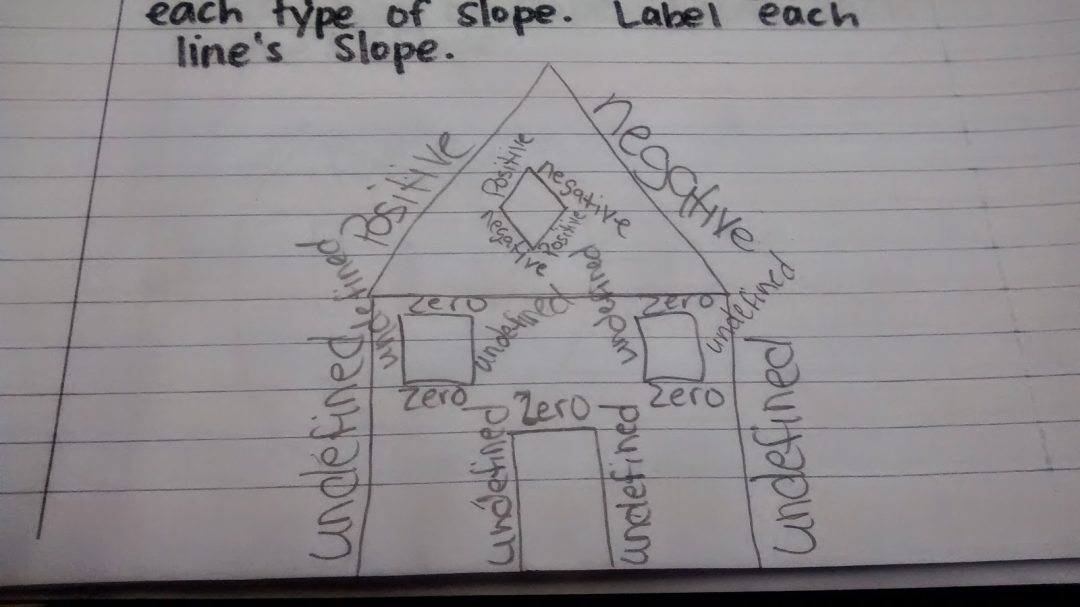 each type of slope. Label each
line's slope.
Positive
negative
Positive
negative
negative
Positive
undefined
zero
undefined
zero
undefined
zero
undefined
zero
undefined
undefined
undefined
zero
undefined
undefined